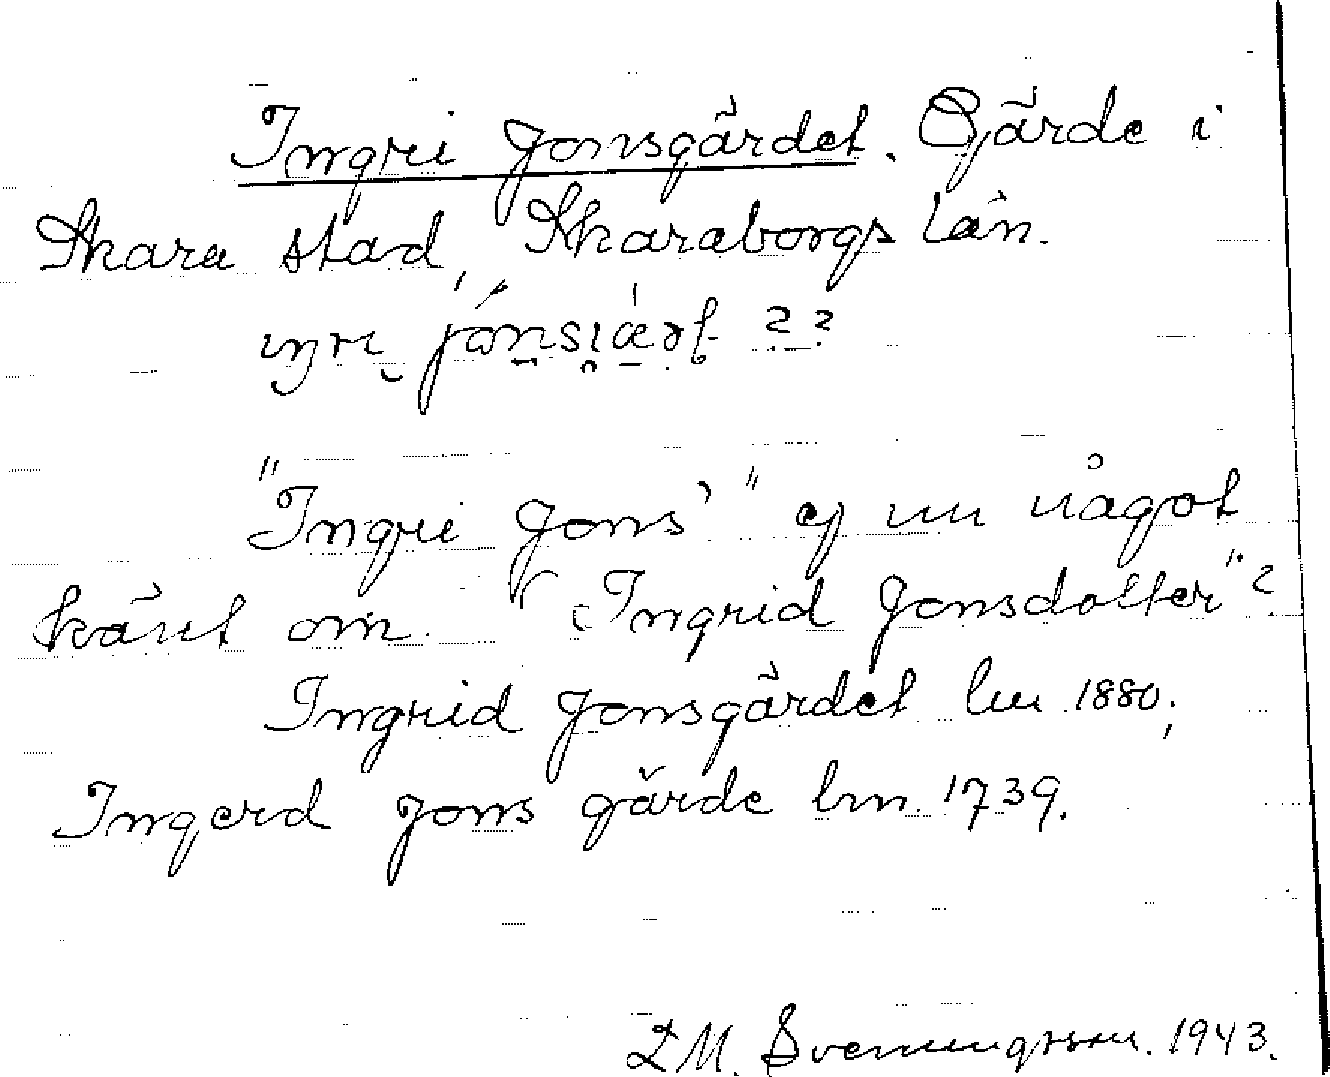 Ingri Jonsgärdet. Gärde i
Skara stad, Skaraborgs län.
ıŋrı jónsɪæ̀rt ??
"Ingri Jons'" ej nu något
känt om. "Ingrid Jonsdotter"?
Ingrid Jonsgärdet lm 1880;
Ingerd Jons gärde lm. 1739.
L M. Svenungsson. 1943.